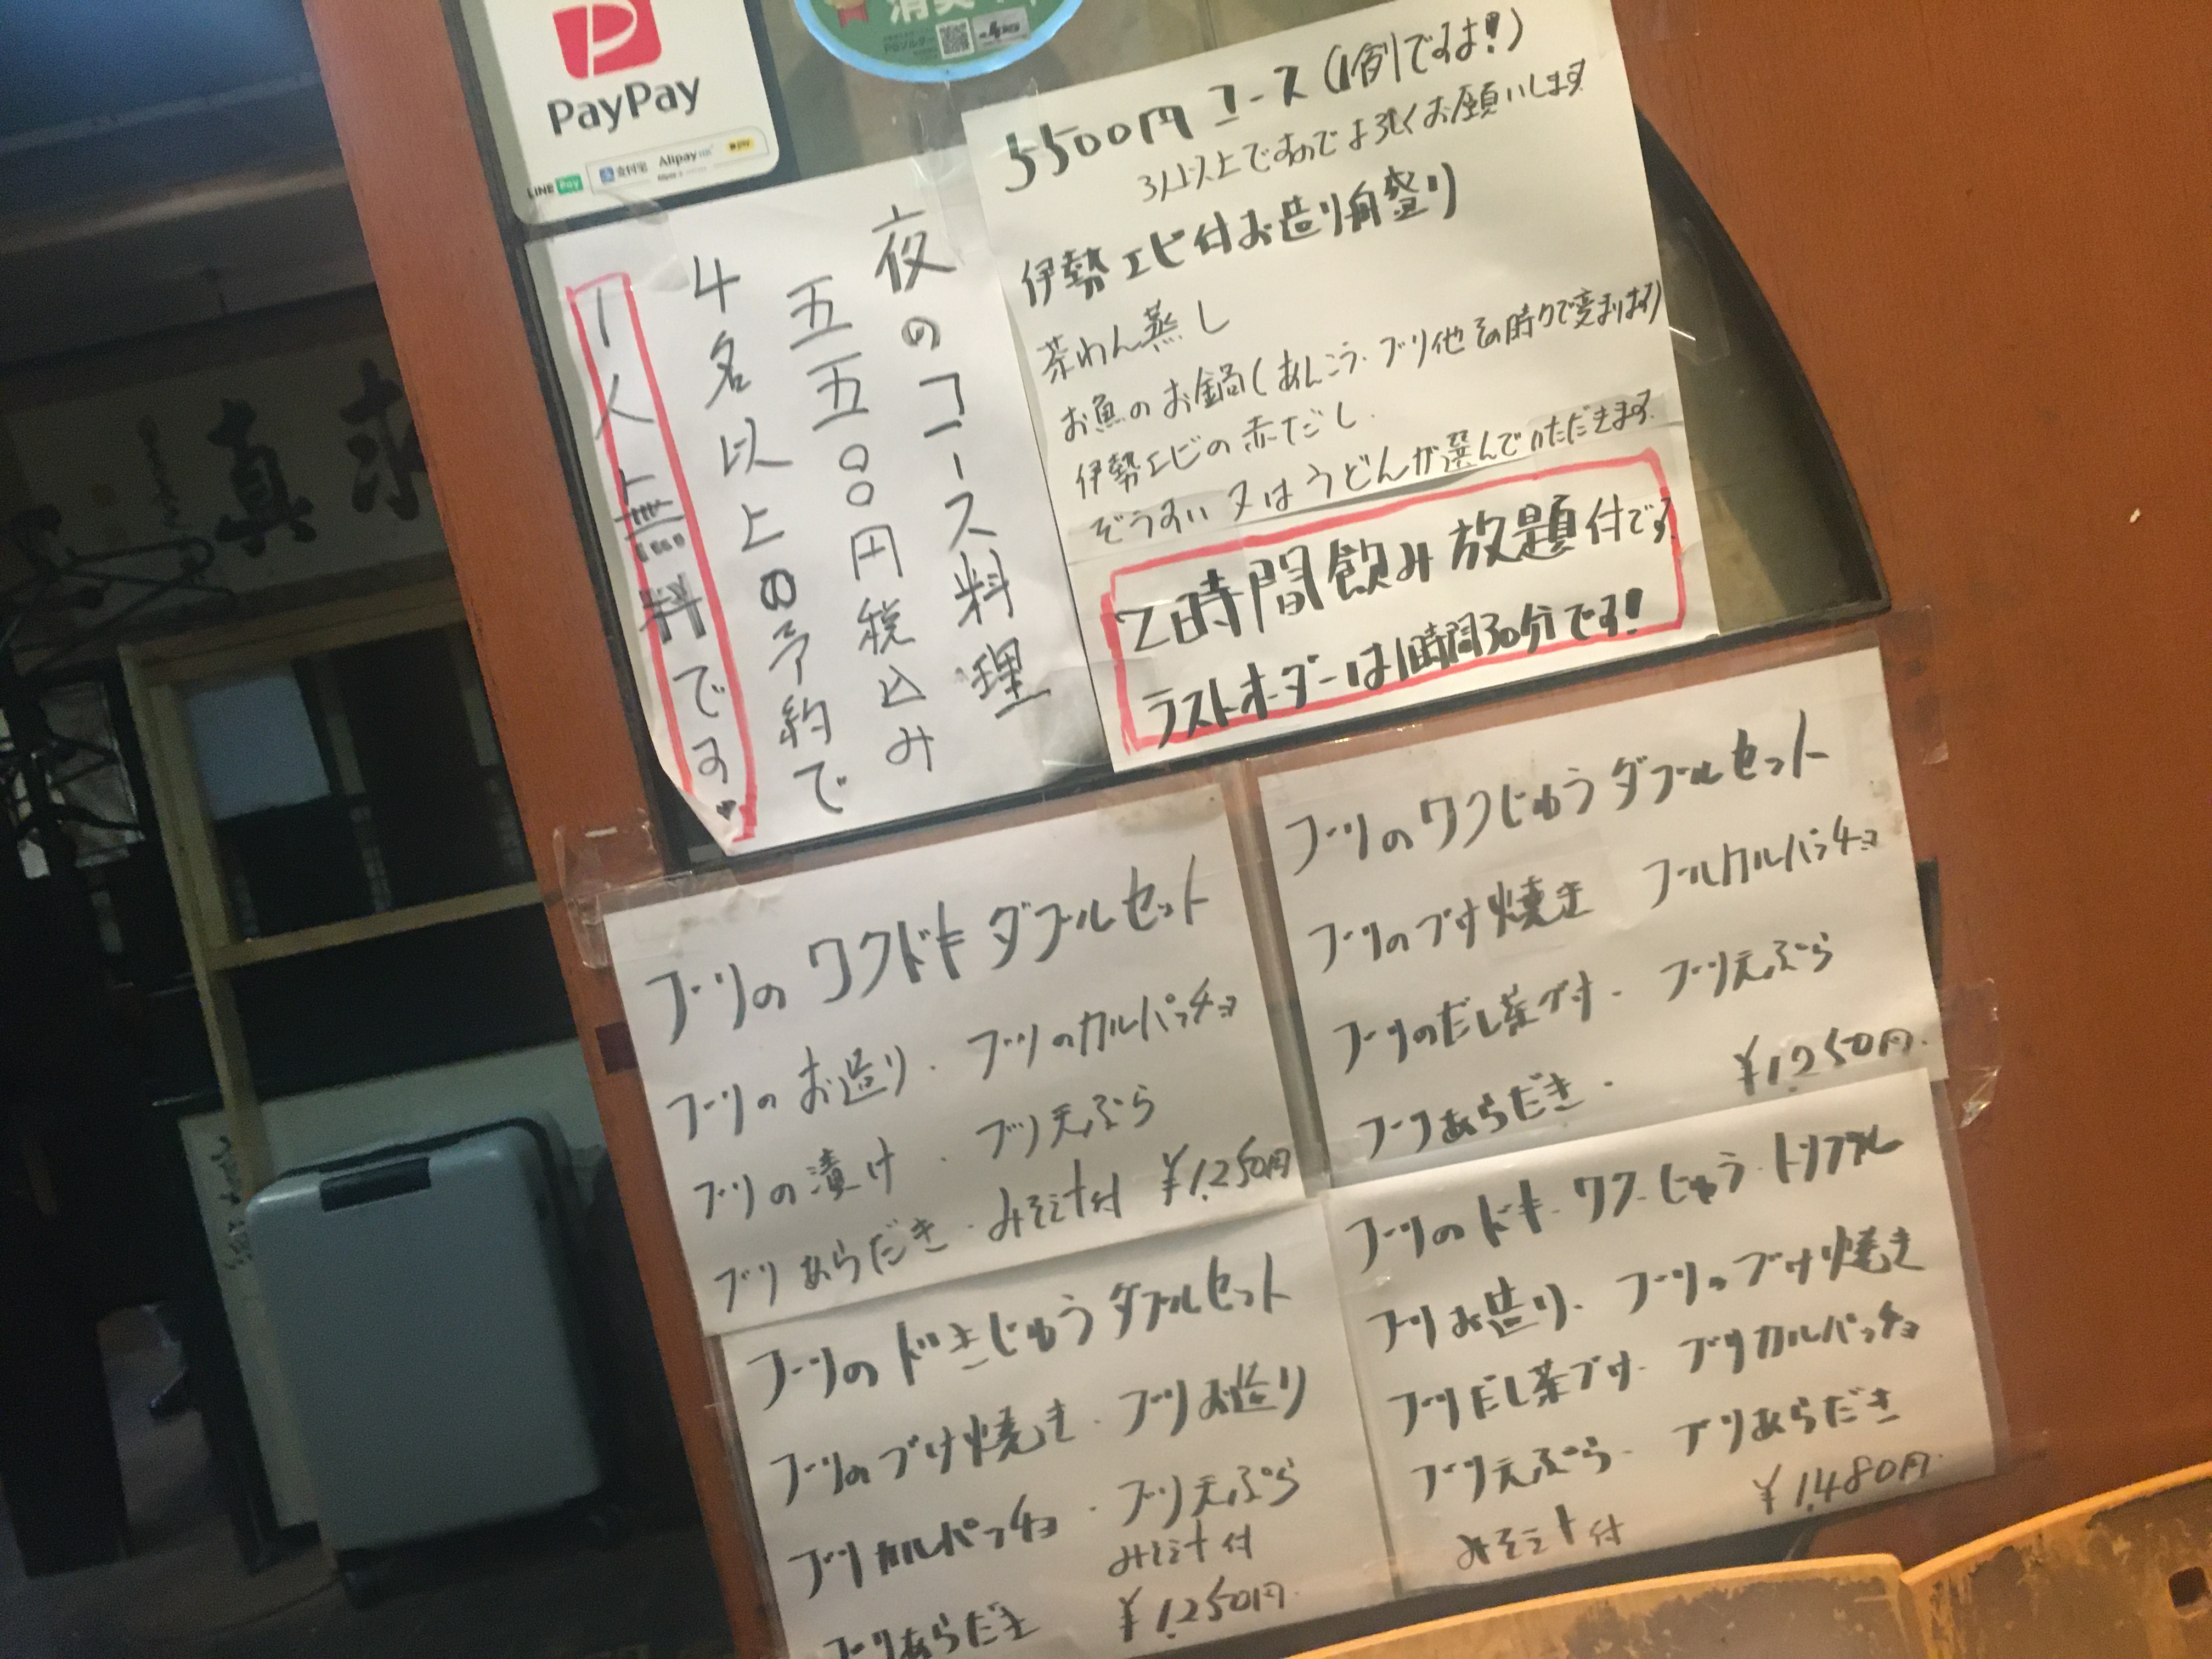 PayPay
LINE Pay
支付宝
Alipay
5500円コース(1例ですよ!)
3人以上ですのでよろしくお願いします
伊勢エビ付お造り舟盛り
茶わん蒸し
お魚のお鍋(あんこう・ブリ他その時々で変わります)
伊勢エビの赤だし
ぞうすい又はうどんが選んでいただきます
2時間飲み放題付です
ラストオーダーは1時間30分です!
夜のコース料理
五五〇〇円税込み
4名以上の予約で
1人無料です
ブリのワクドキダブルセット
ブリのお造り・ブリのカルパッチョ
ブリの漬け・ブリ天ぷら
ブリあらだき・みそ汁付 ¥1,250円
ブリのワクじゅうダブルセット
ブリのづけ焼き ブリカルパッチョ
ブリのだし茶づけ・ブリ天ぷら
ブリあらだき・ ¥1,250円
ブリのドきじゅうダブルセット
ブリのづけ焼き・ブリお造り
ブリカルパッチョ・ブリ天ぷら
みそ汁付
ブリあらだき ¥1,250円
ブリのドキ・ワク・じゅう・トリプル
ブリお造り・ブリのづけ焼き
ブリだし茶づけ・ブリカルパッチョ
ブリ天ぷら・ブリあらだき
みそ汁付 ¥1,480円
真